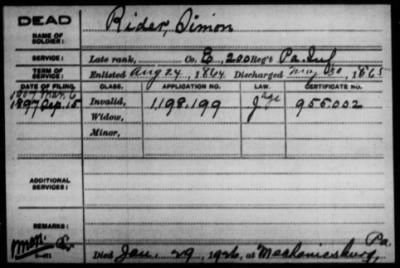 DEAD
NAME OF SOLDIER:
Rider, Simon
SERVICE:
Late rank, Co. E, 200 Reg't Pa. Inf
TERM OF SERVICE:
Enlisted Aug 24, 1864 Discharged May 30, 1865
DATE OF FILING. CLASS. APPLICATION NO. LAW. CERTIFICATE NO.
1897 Sep. 15 Invalid, 1.198.199 Age 955.002
Widow,
Minor,
ADDITIONAL SERVICES:
REMARKS:
Died Jan. 29, 1926, at Mechanicsburg, Pa.